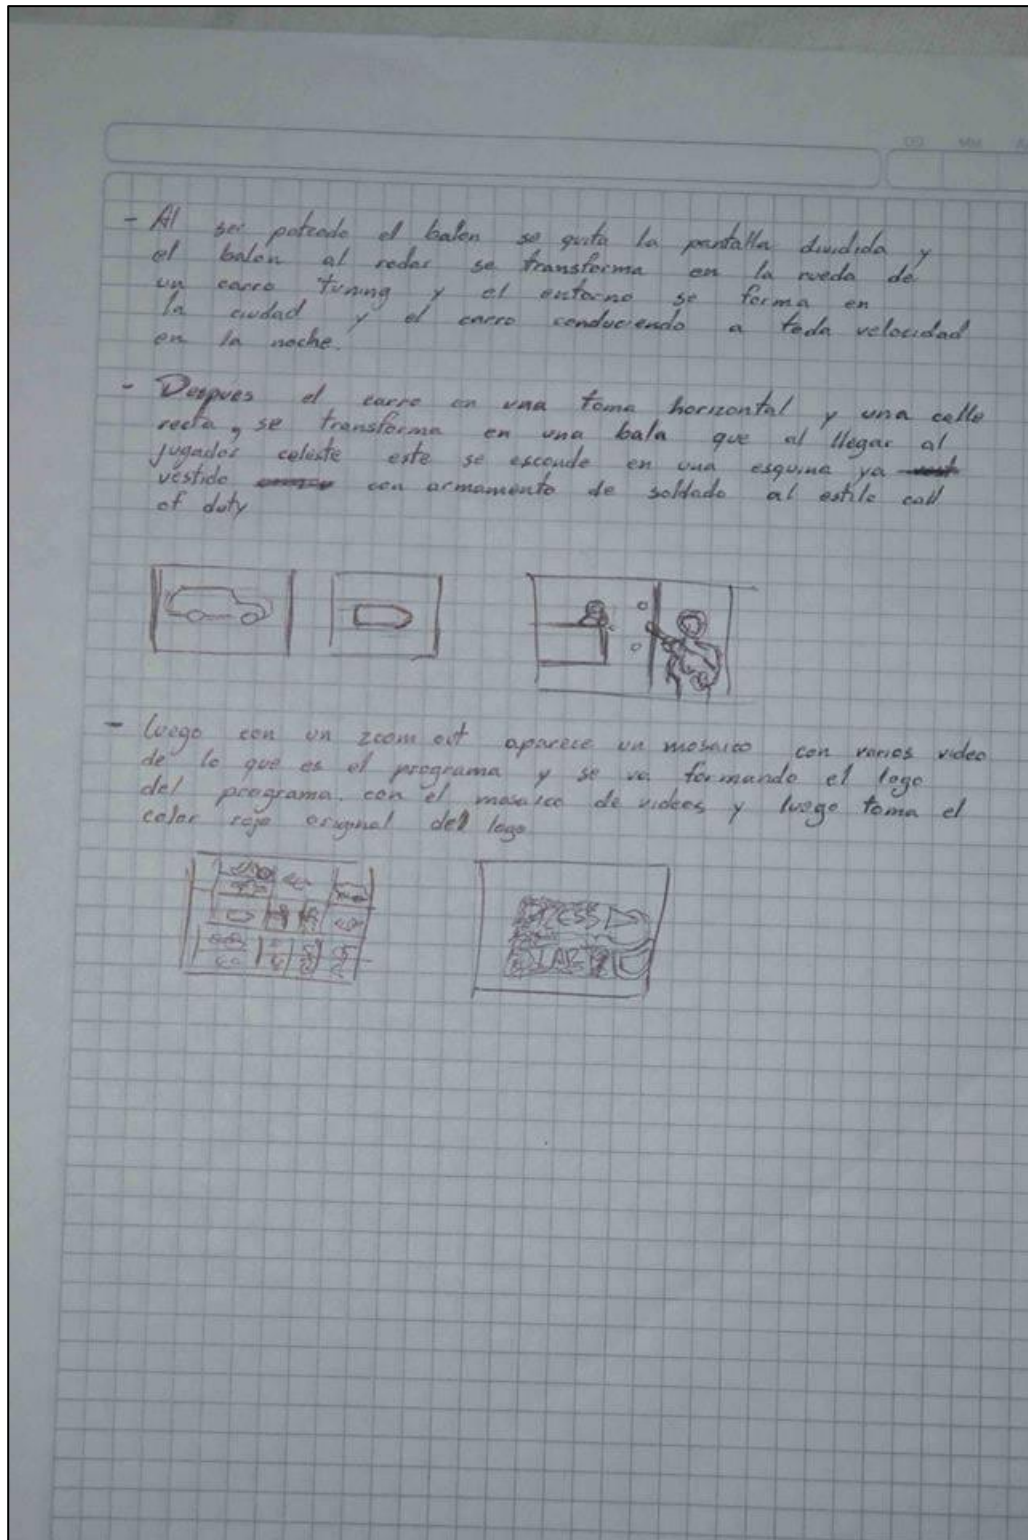 DD MM
- Al ser pateado el balon se quita la pantalla dividida y
el balon al rodar se transforma en la rueda de
un carro tuning y el entorno se forma en
la ciudad y el carro conduciendo a toda velocidad
en la noche.
- Despues el carro en una toma horizontal y una calle
recta, se transforma en una bala que al llegar al
jugador celeste este se esconde en una esquina ya
vestido con armamento de soldado al estilo call
of duty
- luego con un zoom out aparece un mosaico con varios video
de lo que es el programa y se va formando el logo
del programa. con el mosaico de videos y luego toma el
color rojo original del logo